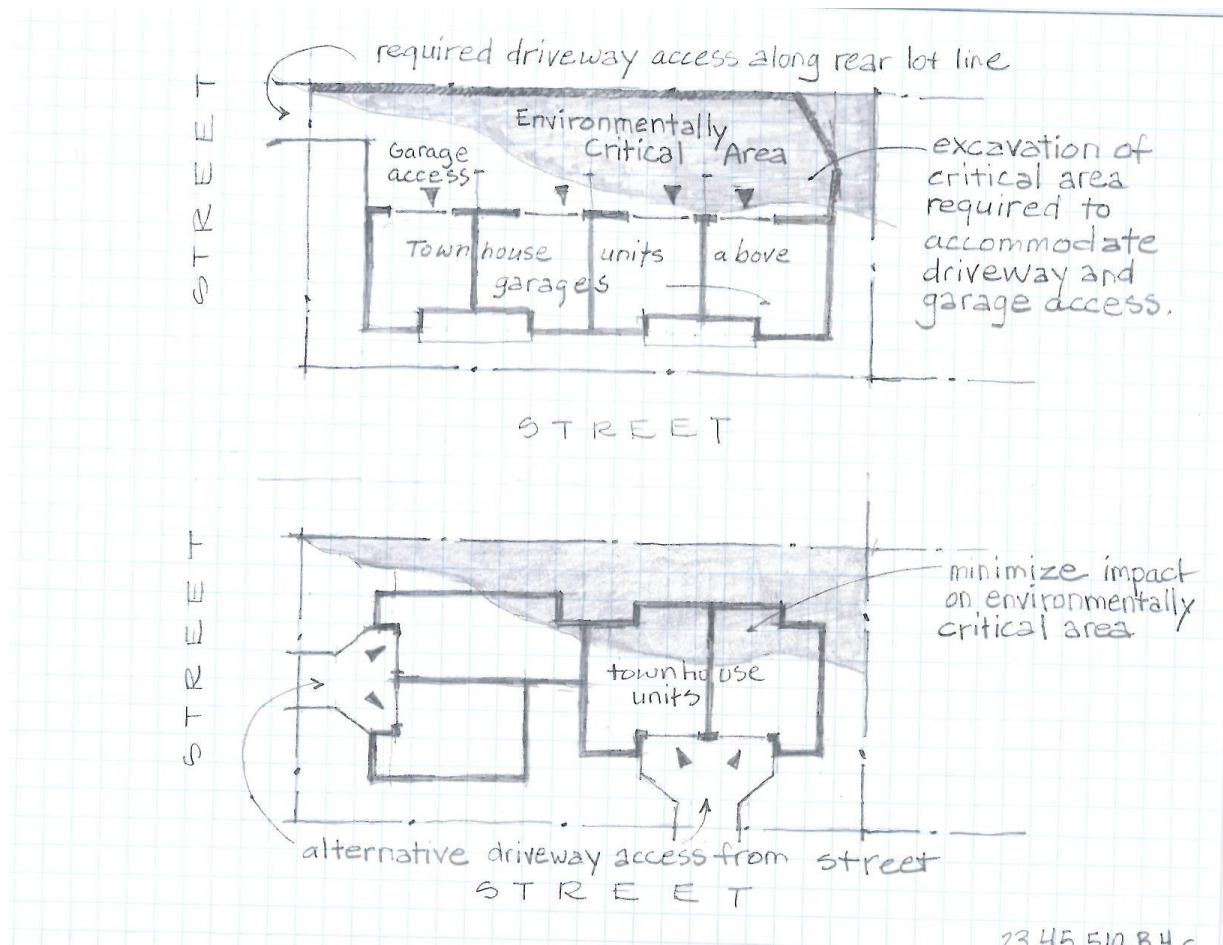 required driveway access along rear lot line
STREET
Environmentally
Critical Area
Garage
access
excavation of
critical area
required to
accommodate
driveway and
garage access.
Townhouse units above
garages
STREET
STREET
minimize impact
on environmentally
critical area
townhouse
units
alternative driveway access from street
STREET